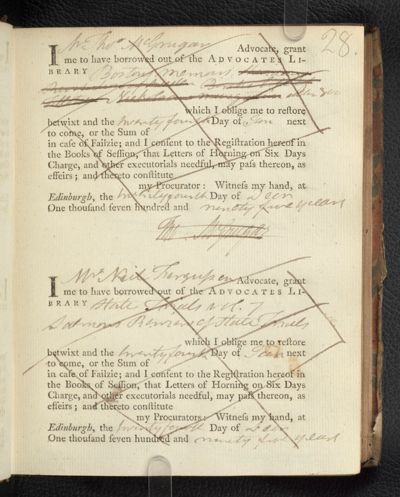 28.
I Mr Tho. McGrugar Advocate, grant
me to have borrowed out of the ADVOCATES LI-
BRARY Boston's memoirs
which I oblige me to reſtore
betwixt and the twenty fourth Day of Jan next
to come, or the Sum of
in caſe of Failzie; and I conſent to the Regiſtration hereof in
the Books of Seſſion, that Letters of Horning on Six Days
Charge, and other executorials needful, may paſs thereon, as
effeirs; and thereto conſtitute
my Procurator: Witneſs my hand, at
Edinburgh, the twenty fourth Day of Decr
One thouſand ſeven hundred and ninety five years
I Mr Neil Ferguſson Advocate, grant
me to have borrowed out of the ADVOCATES LI-
BRARY State Trials vol. 7
Salmons Review of State Trials
which I oblige me to reſtore
betwixt and the twenty fourth Day of Jan next
to come, or the Sum of
in caſe of Failzie; and I conſent to the Regiſtration hereof in
the Books of Seſſion, that Letters of Horning on Six Days
Charge, and other executorials needful, may paſs thereon, as
effeirs; and thereto conſtitute
my Procurators: Witneſs my hand, at
Edinburgh, the twenty fourth Day of Decr
One thouſand ſeven hundred and ninety five years